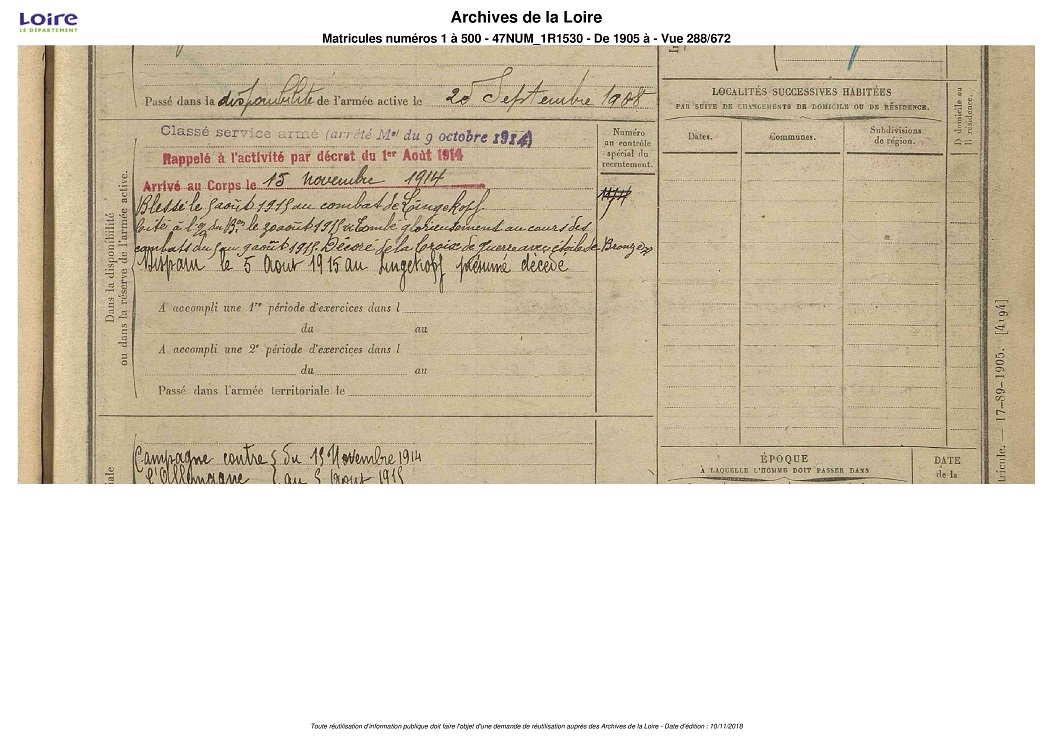 Loire
LE DÉPARTEMENT
Archives de la Loire
Matricules numéros 1 à 500 - 47NUM_1R1530 - De 1905 à - Vue 288/672
Passé dans la disponibilité de l'armée active le 20 Septembre 1908
Classé service armé (arrêté Mel du 9 octobre 1914)
Rappelé à l'activité par décret du 1er Août 1914
Arrivé au Corps le 15 novembre 1914
Blessé le 5 août 1915 au combat de Lingekopf
Cité à l'o. du Bon le 30 août 1915 Tombé glorieusement au cours des
combats du 5 au 9 août 1915. Décoré de la Croix de guerre avec étoile de Bronze
Disparu le 5 Aout 1915 au Lingekopf présumé décédé
Dans la disponibilité
ou dans la réserve de l'armée active.
A accompli une 1re période d'exercices dans l
du au
A accompli une 2e période d'exercices dans l
du au
Passé dans l'armée territoriale le
Campagne contre { du 15 Novembre 1914
l'Allemagne { au 5 Aout 1915
Numéro
au contrôle
spécial du
recrutement.
LOCALITÉS SUCCESSIVES HABITÉES
PAR SUITE DE CHANGEMENTS DE DOMICILE OU DE RÉSIDENCE.
Dates.
Communes.
Subdivisions
de région.
D domicile ou
R résidence.
ÉPOQUE
À LAQUELLE L'HOMME DOIT PASSER DANS
DATE
de la
tricule. — 17-89-1905. [4194]
Toute réutilisation d'information publique doit faire l'objet d'une demande de réutilisation auprès des Archives de la Loire - Date d'édition : 10/11/2018